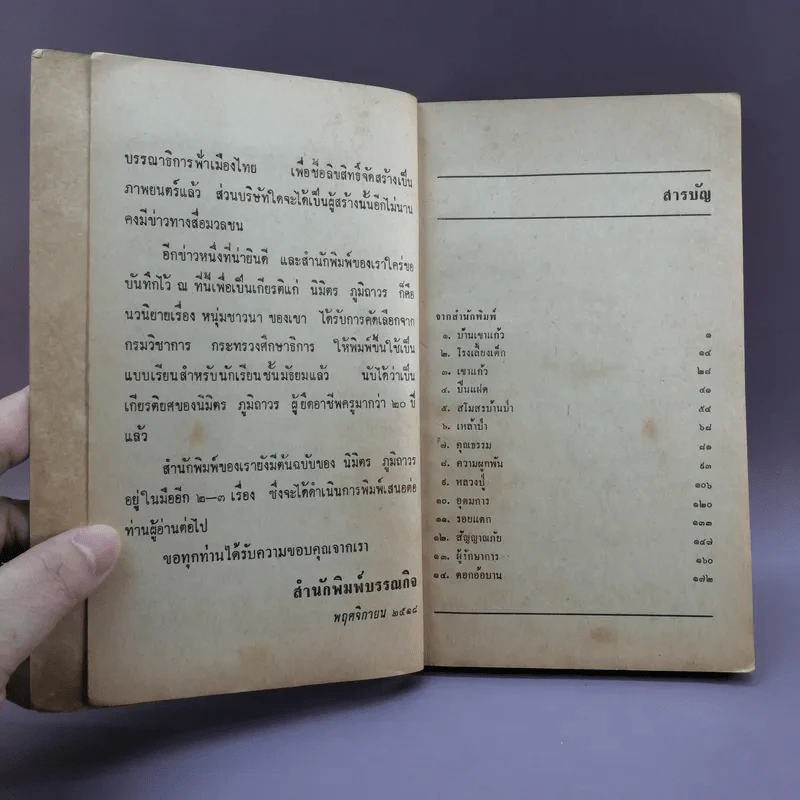 บรรณาธิการฟ้าเมืองไทย เพื่อซื้อลิขสิทธิ์จัดสร้างเป็น
ภาพยนตร์แล้ว ส่วนบริษัทใดจะได้เป็นผู้สร้างนั้นอีกไม่นาน
คงมีข่าวทางสื่อมวลชน
อีกข่าวหนึ่งที่น่ายินดี และสำนักพิมพ์ของเราใคร่ขอ
บันทึกไว้ ณ ที่นี้เพื่อเป็นเกียรติแก่ นิมิตร ภูมิถาวร ก็คือ
นวนิยายเรื่อง หนุ่มชาวนา ของเขา ได้รับการคัดเลือกจาก
กรมวิชาการ กระทรวงศึกษาธิการ ให้พิมพ์ขึ้นใช้เป็น
แบบเรียนสำหรับนักเรียนชั้นมัธยมแล้ว นับได้ว่าเป็น
เกียรติยศของนิมิตร ภูมิถาวร ผู้ยึดอาชีพครูมากว่า ๒๐ ปี
แล้ว
สำนักพิมพ์ของเรายังมีต้นฉบับของ นิมิตร ภูมิถาวร
อยู่ในมืออีก ๒—๓ เรื่อง ซึ่งจะได้ดำเนินการพิมพ์เสนอต่อ
ท่านผู้อ่านต่อไป
ขอทุกท่านได้รับความขอบคุณจากเรา
สำนักพิมพ์บรรณกิจ
พฤศจิกายน ๒๕๑๘
สารบัญ
จากสำนักพิมพ์
๑. บ้านเขาแก้ว ๑
๒. โรงเลี้ยงเด็ก ๑๔
๓. เขาแก้ว ๒๘
๔. ปืนแฝด ๔๑
๕. สโมสรบ้านป่า ๕๔
๖. เหล้าป่า ๖๘
๗. คุณธรรม ๘๑
๘. ความผูกพัน ๙๓
๙. หลวงปู่ ๑๐๖
๑๐. อุดมการ ๑๒๐
๑๑. รอยแตก ๑๓๓
๑๒. สัญญาณภัย ๑๔๗
๑๓. ผู้รักษาการ ๑๖๐
๑๔. ดอกอ้อบาน ๑๗๒